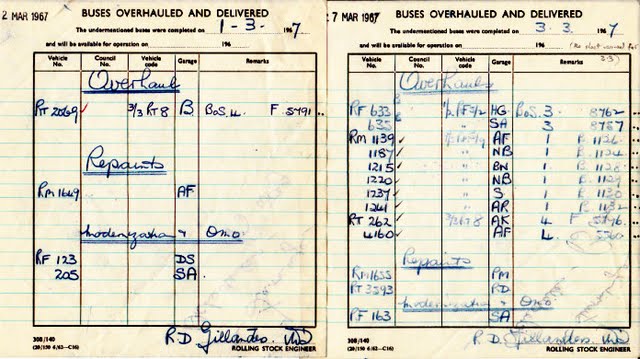 2 MAR 1967
BUSES OVERHAULED AND DELIVERED
The undermentioned buses were completed on 1-3. 1967
and will be available for operation on 196
Vehicle No. Council No. Vehicle code Garage Remarks
Overhaul
RT 2069 3/3 RT8 B. BoS. 4. F 5791
Repaints
RM 1649 AF
Modernization & Omo.
RF 123 DS
205 SA.
R.D. Gillandes.
308/140
(20/150 6/62-C16)
ROLLING STOCK ENGINEER
7 MAR 1967
BUSES OVERHAULED AND DELIVERED
The undermentioned buses were completed on 3. 3. 1967
and will be available for operation on 196
Vehicle No. Council No. Vehicle code Garage Remarks
Overhauls
RF 633 HG BoS. 3 8762
635 " SA 3 8757
RM 1139 AF 1 B. 1126
1187 " NB 1 B. 1124
1215 " BN 1 B. 1128
1220 " NB 1 B. 1129
1237 " S 1 B. 1130
1241 " AR 1 B. 1132
RT 262 AK 4 F 5796
4160 " AF 4
Repaints
RM 1655 PM
RT 3593 RD
Modernization & Omo
RF 163 SA
R.D. Gillandes.
308/140
(20/150 6/62-C16)
ROLLING STOCK ENGINEER